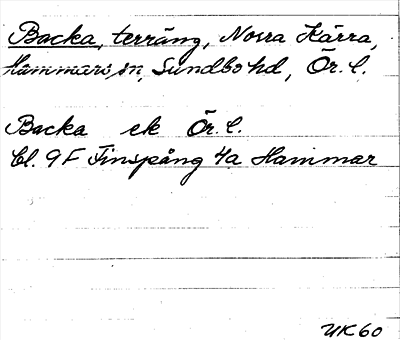 Backa, terräng, Norra Kärra,
Hammars sn, Sundbo hd, Ör. l.
Backa ek Ör. l.
Bl. 9F Finspång 4a Hammar
UK60